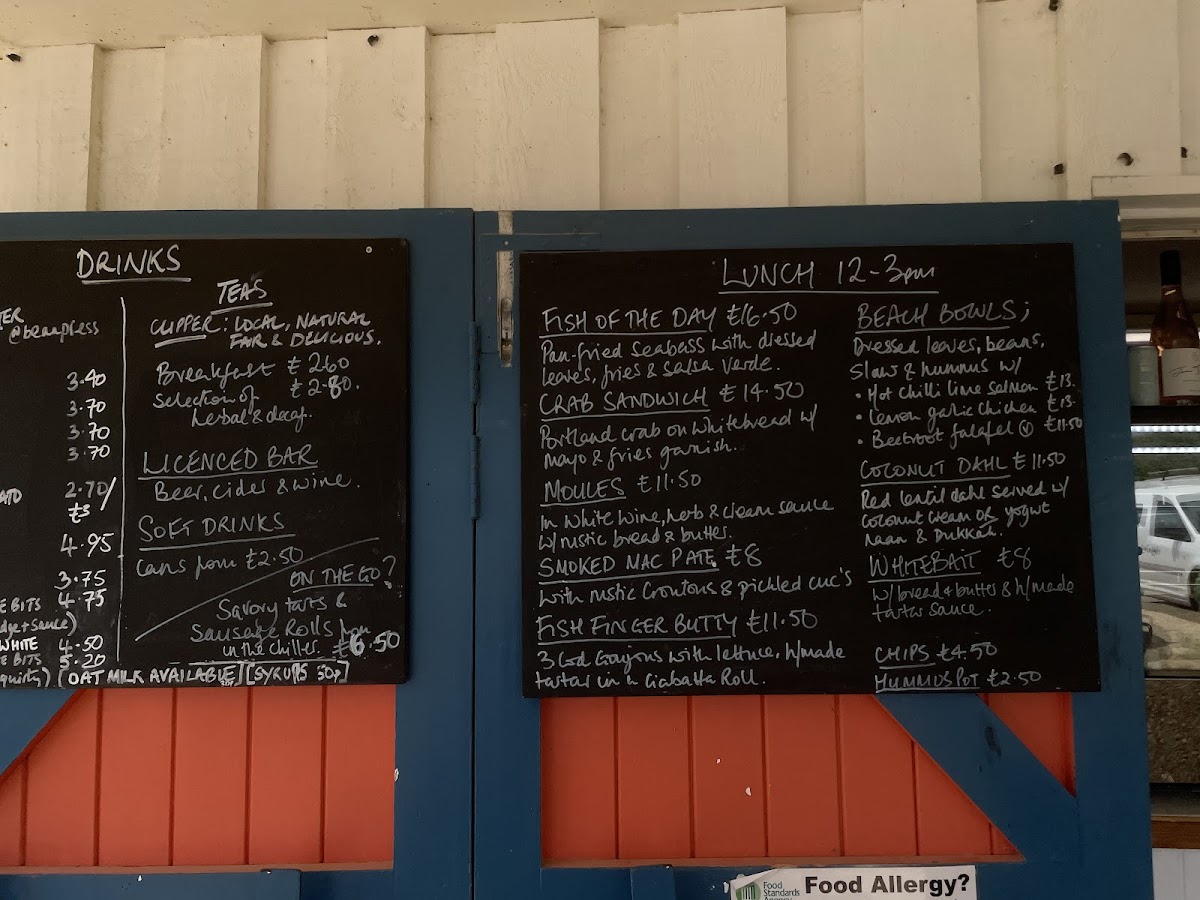 DRINKS
@beanpress
3.40
3.70
3.70
3.70
2.70/
£3
4.95
3.75
E BITS 4.75
sauce)
WHITE 4.50
E BITS 5.20
TEAS
CLIPPER: LOCAL, NATURAL
FAIR & DELICIOUS.
Breakfast £2.60
Selection of £2.80.
herbal & decaf.
LICENCED BAR
Beer, cider & wine.
SOFT DRINKS
cans from £2.50
ON THE GO?
Savory tarts &
Sausage Rolls from
in the chiller. £6.50
(OAT MILK AVAILABLE) [SYRUPS 50p]
LUNCH 12-3pm
FISH OF THE DAY £16.50
Pan-fried Seabass with dressed
leaves, fries & salsa verde.
CRAB SANDWICH £14.50
Portland crab on white bread w/
mayo & fries garnish.
MOULES £11.50
In white wine, herb & cream sauce
w/ rustic bread & butter.
SMOKED MAC PATE £8
with rustic croutons & pickled cuc's
FISH FINGER BUTTY £11.50
3 Cod Goujons with lettuce, h/made
tartar in a Ciabatta Roll.
BEACH BOWLS;
Dressed leaves, beans,
Slaw & hummus w/
• Hot chilli lime salmon £13.
• Lemon garlic chicken £13.
• Beetroot falafel Ⓥ £11.50
COCONUT DAHL £11.50
Red lentil dahl served w/
coconut cream or yogurt
naan & Dukkah.
WHITEBAIT £8
w/ bread & butter & h/made
tartar sauce.
CHIPS £4.50
HUMMUS POT £2.50
Food
Standards
Agency
Food Allergy?